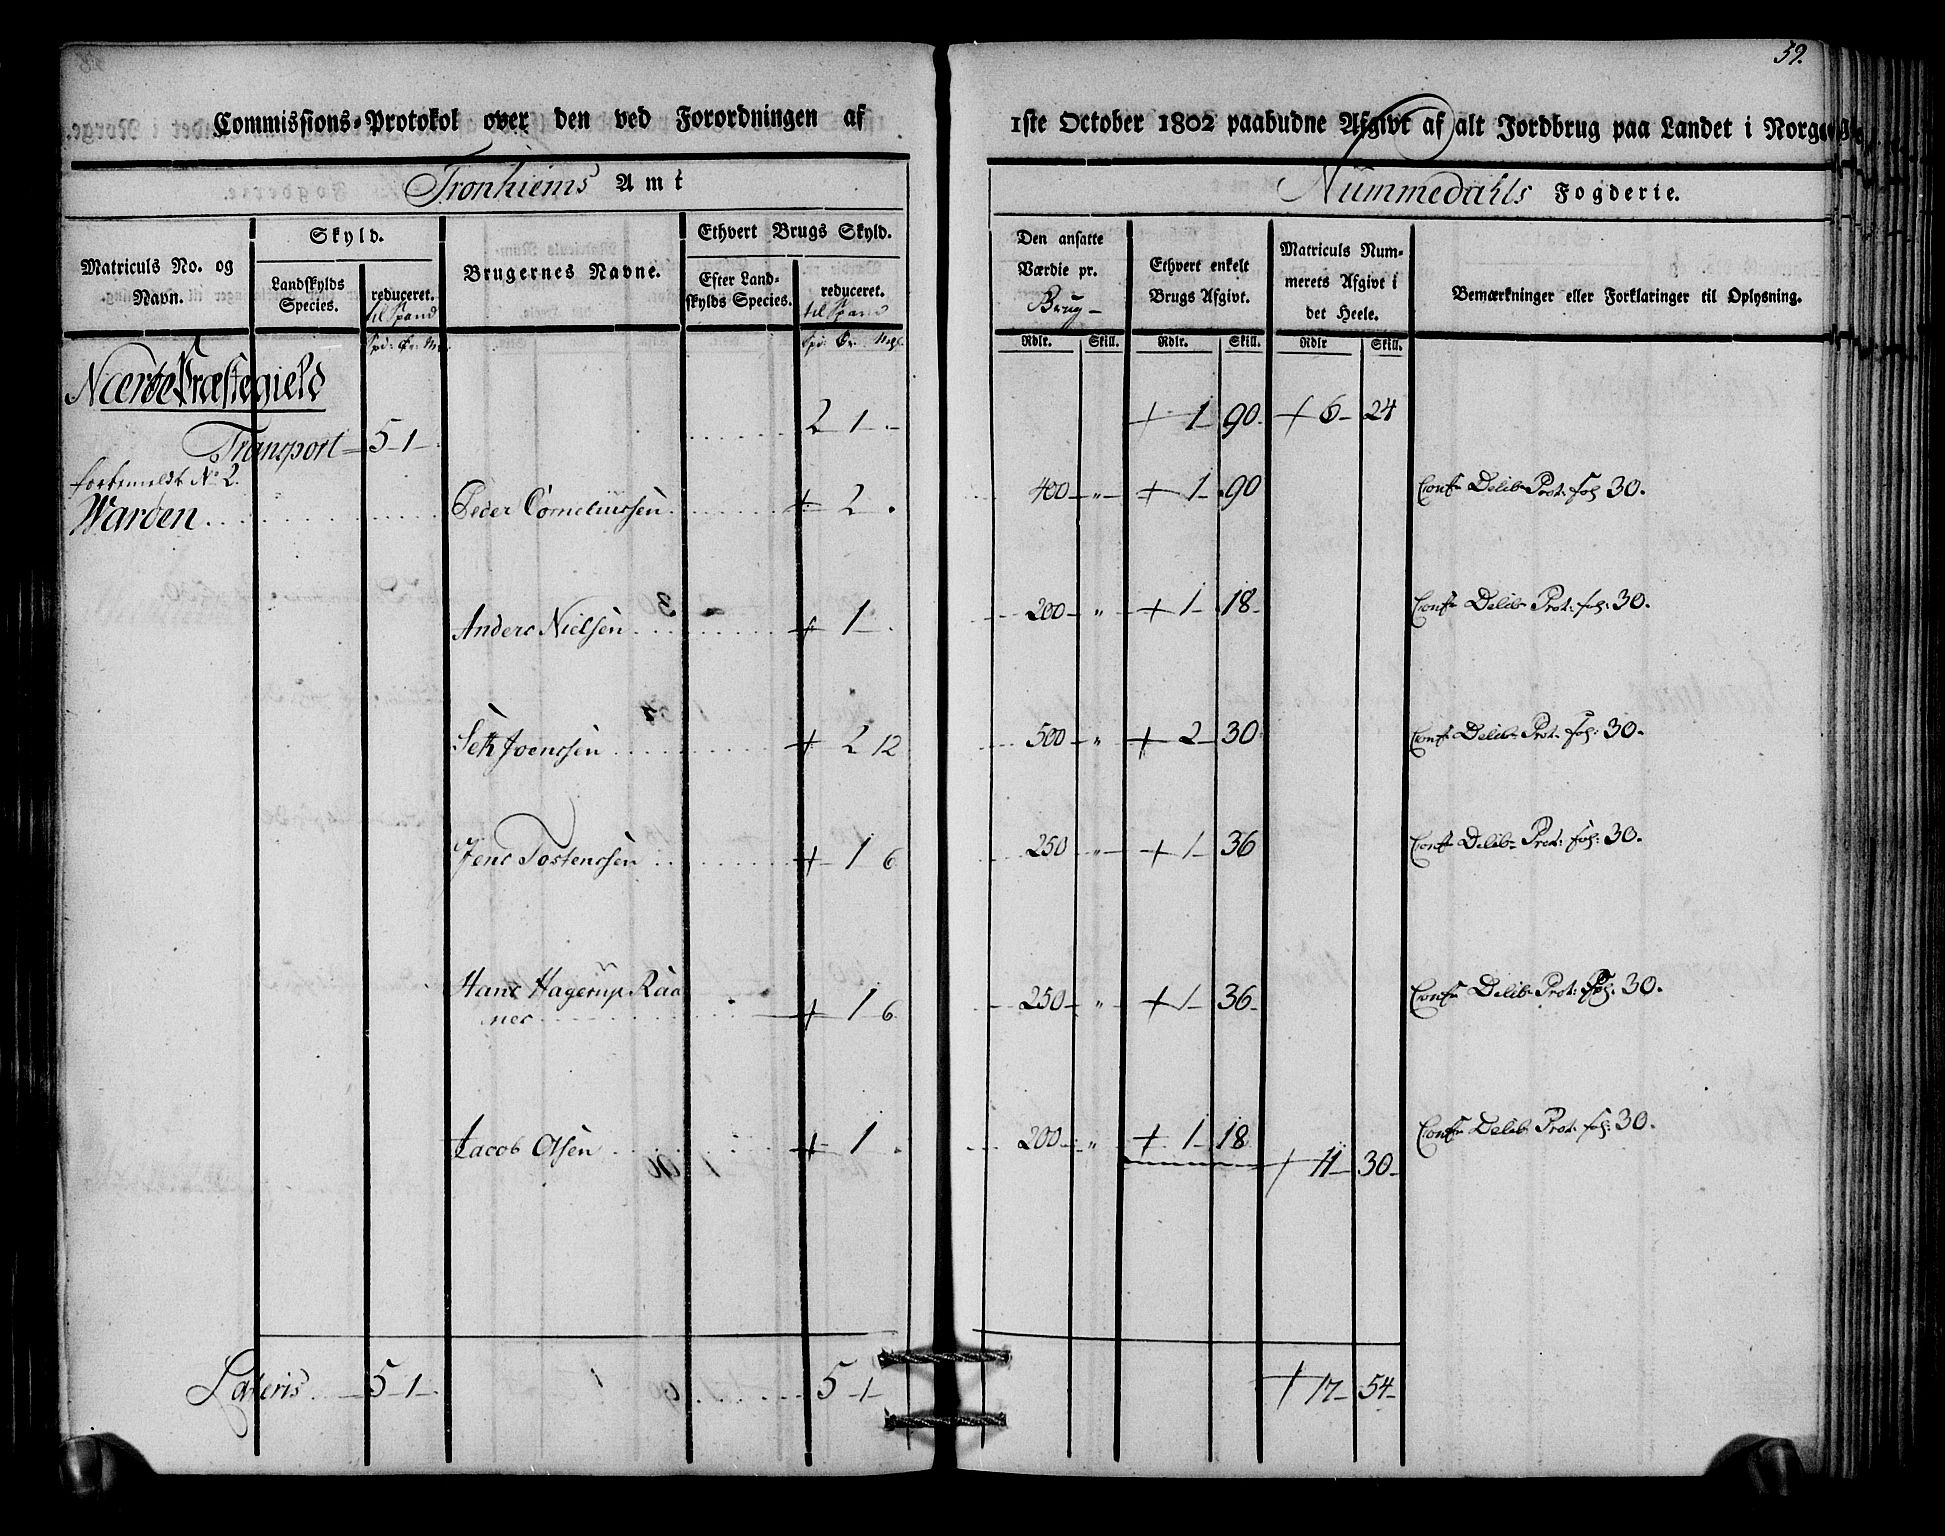 59.
Commissions-Protokol over den ved Forordningen af 1ste October 1802 paabudne Afgivt af alt Jordbrug paa Landet i Norge
Tronhiems Amt
Nummedahls Fogderie.
Matriculs No. og Navn.
Skyld.
Landskylds Species.
reduceret.
til Spand
Brugernes Navne.
Ethvert Brugs Skyld.
Efter Landskylds Species.
reduceret.
til Spand
Den ansatte Værdie pr. Brug
Ethvert enkelt Brugs Afgivt.
Matriculs Nummerets Afgivt i det Heele.
Bemærkninger eller Forklaringer til Oplysning.
Rdlr. Skill. Rdlr. Skill. Rdlr Skill.
Nærøe Præstegield
Transport 5 1 2 1 + 1 90 + 6 24
No 2.
Warden Peder Corneliussen + 2 400 " + 1 90 Conf Delib Prot: fol 30.
Anders Nielsen + 1 200 " + 1 18 Conf Delib Prot: fol: 30.
Seth Joenssen + 2 12 500 " + 2 30 Conf Delib Prot: fol: 30.
Jens Tostenssen + 1 6 250 " + 1 36 Conf Delib Prot: fol: 30.
Hans Hagerup Raa
nes + 1 6 250 " + 1 36 Conf Delib Prot: fol: 30.
Jacob Olsen + 1 200 " + 1 18 Conf Delib Prot: fol: 30.
+ 11 30
Lateris 5 1 5 1 + 17 54